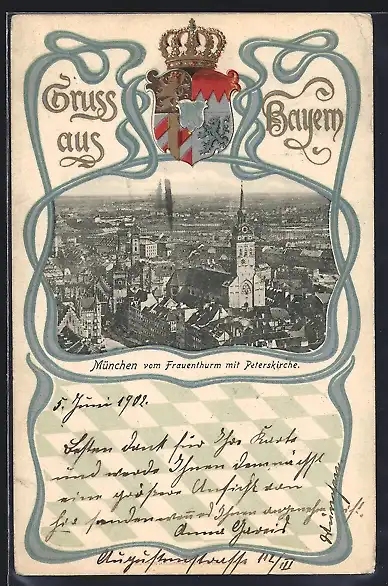 Gruss
aus
Bayern
München vom Frauenthurm mit Peterskirche.
5. Juni 1902.
Besten Dank für Ihre Karte
und werde Ihnen demnächst
eine größere Ansicht von
hier senden wenn es Ihnen angenehm ist.
Anna
Augustenstrasse 112/III